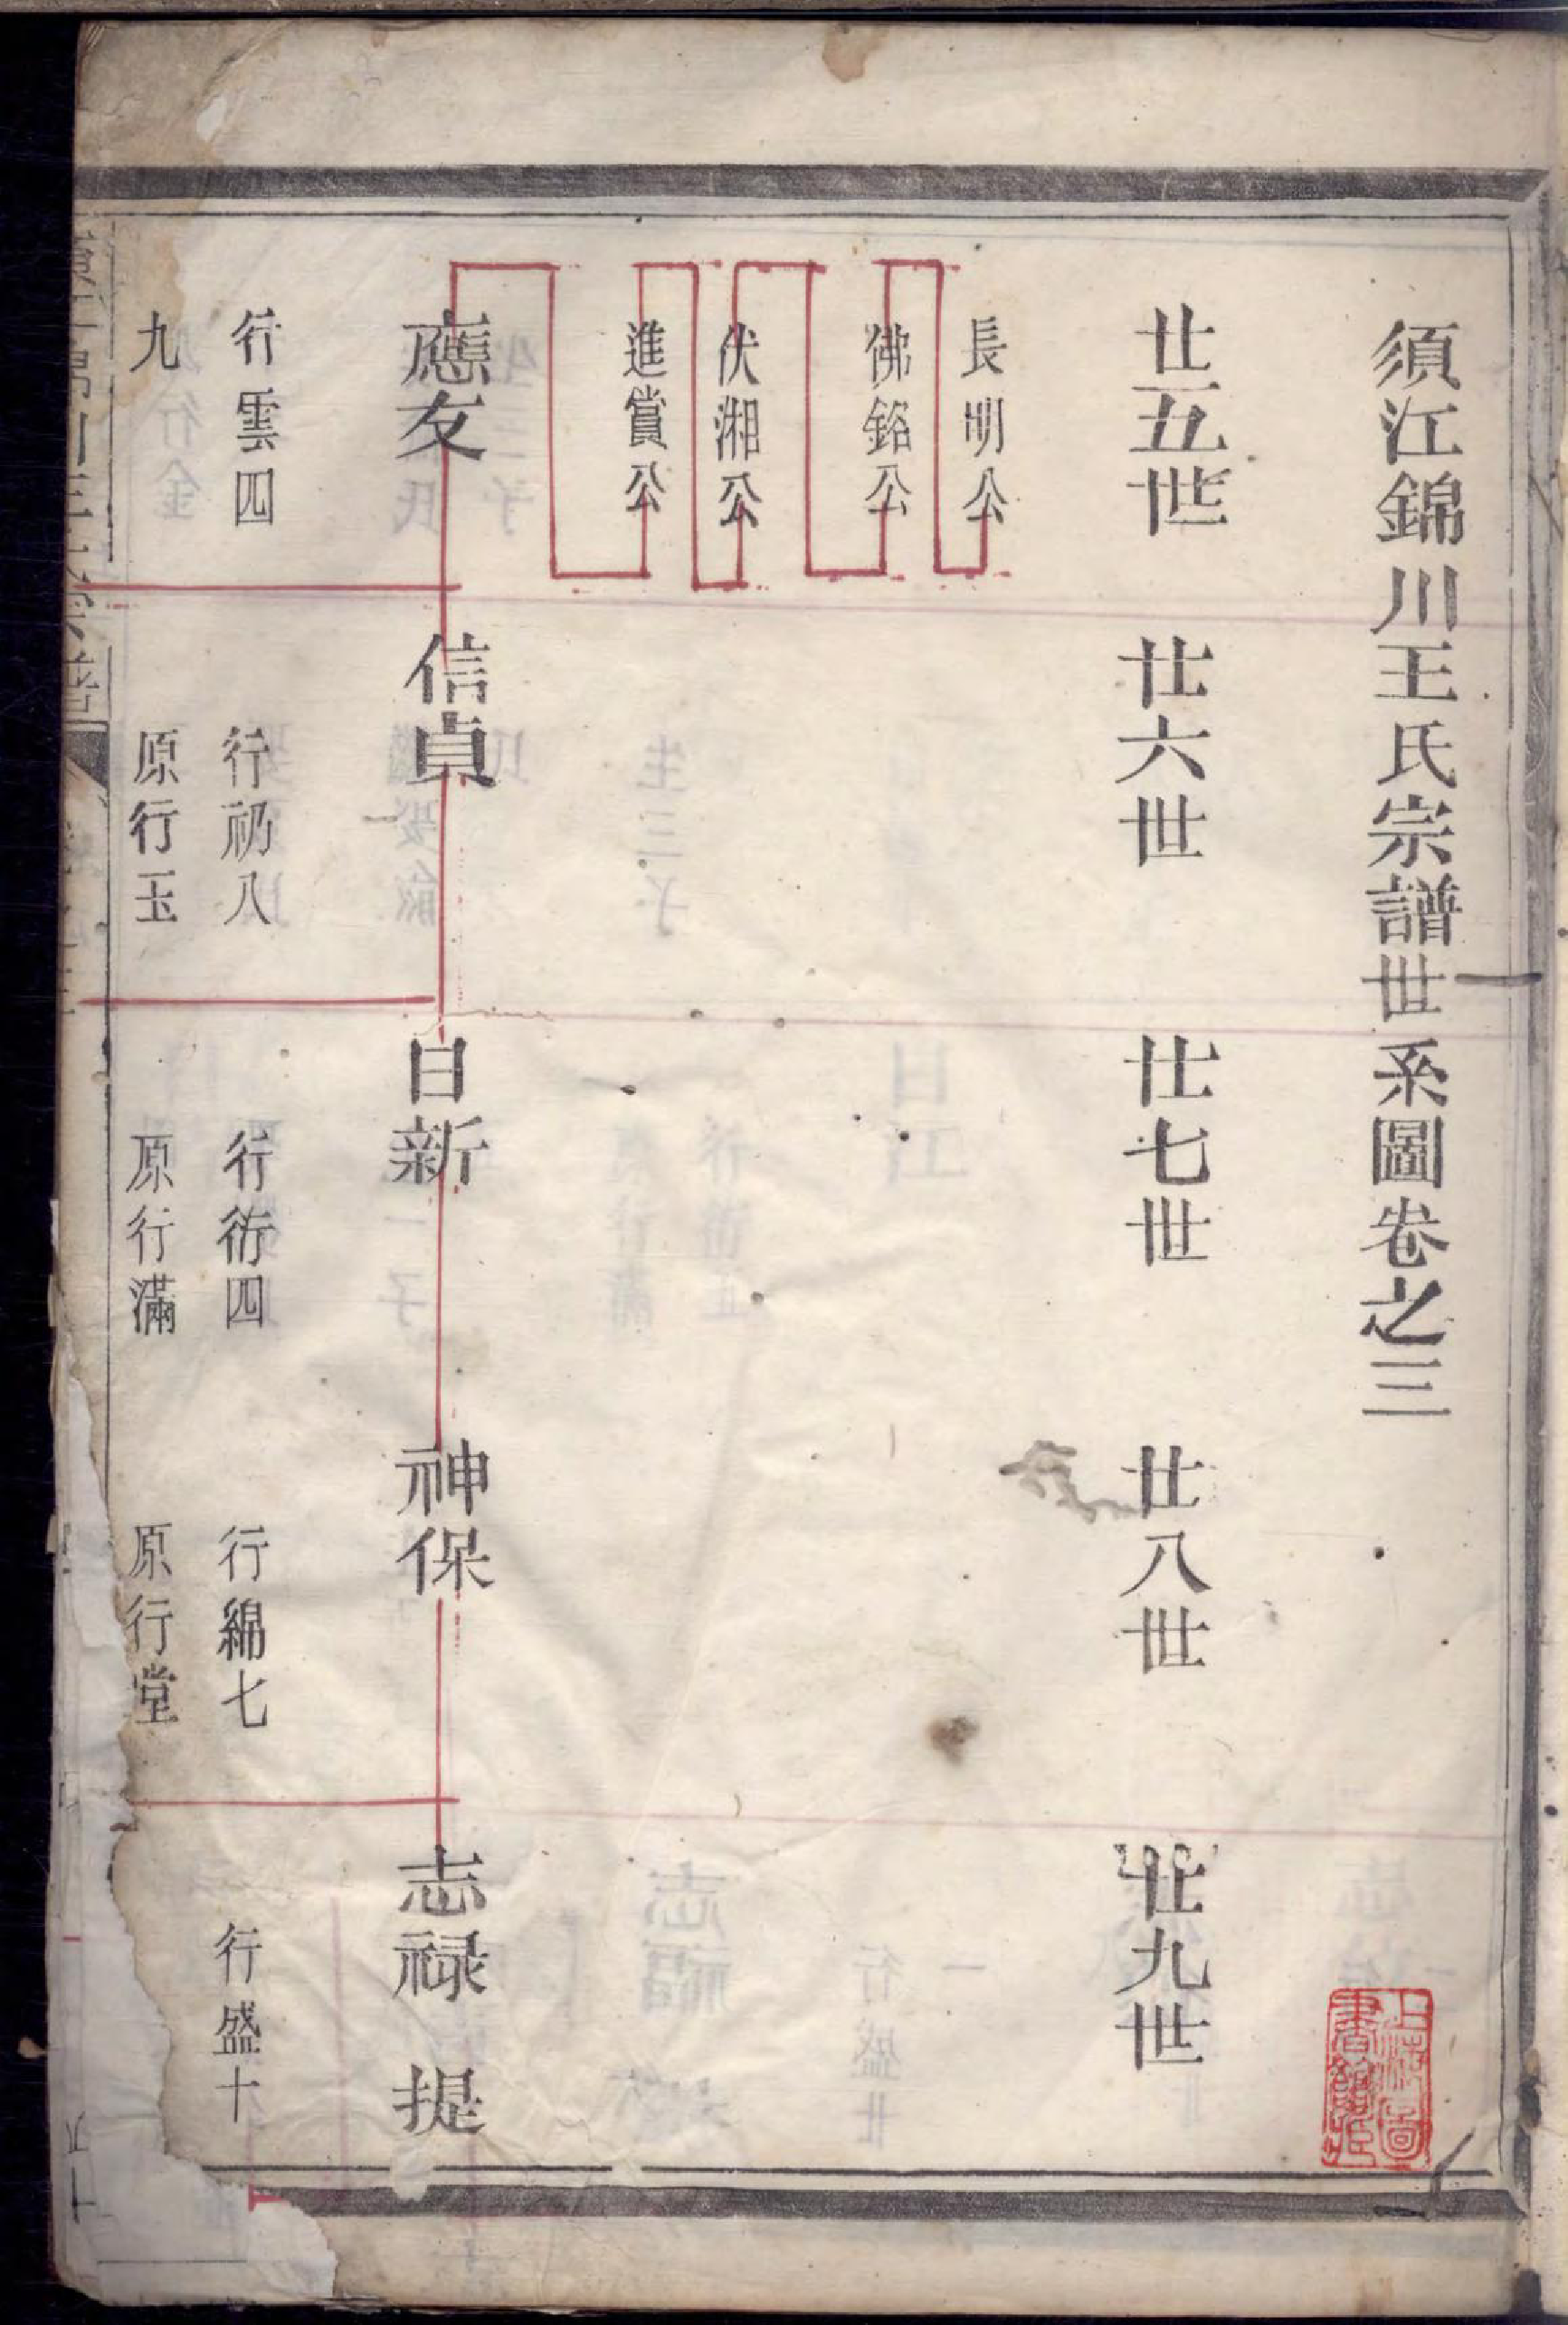 須江錦川王氏宗譜世系圖卷之三
廿五世
廿六世
廿七世
廿八世
廿九世
長明公
佛銘公
伏湘公
進賞公
應友
信貞
日新
神保
志祿 提
行雲四
九
行礽八
原行玉
行衍四
原行滿
行綿七
原行堂
行盛十
上海圖書館藏